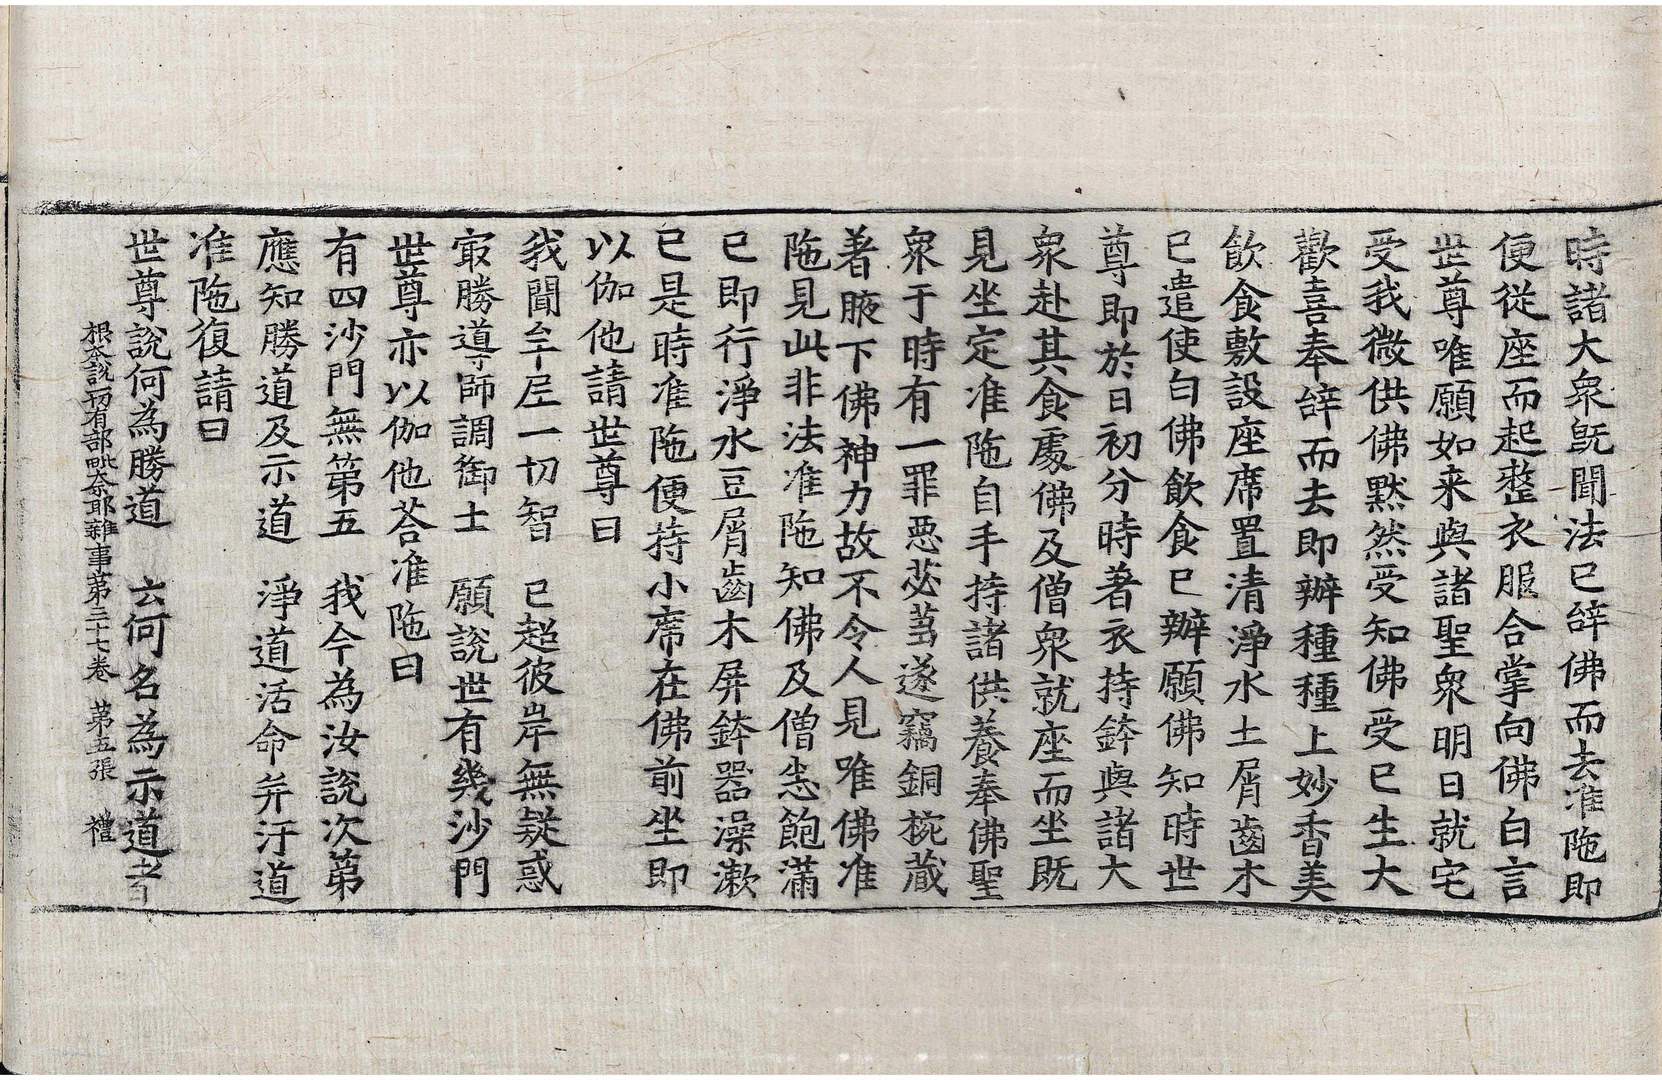 時諸大衆旣聞法已辝佛而去准陁即
便從座而起整衣服合掌向佛白言
世尊唯願如来與諸聖衆明日就宅
受我微供佛黙然受知佛受已生大
歡喜奉辝而去即辦種種上妙香美
飮食敷設座席置清淨水土屑齒木
已遣使白佛飮食已辦願佛知時世
尊即於日初分時著衣持鉢與諸大
衆赴其食處佛及僧衆就座而坐既
見坐定准陁自手持諸供養奉佛聖
衆于時有一罪惡苾蒭遂竊銅椀蔵
著腋下佛神力故不令人見唯佛准
陁見此非法准陁知佛及僧悉飽滿
已即行淨水豆屑齒木屏鉢器澡漱
已是時准陁便持小席在佛前坐即
以伽他請世尊曰
我聞牟尼一切智　已超彼岸無疑惑
㝡勝導師調御士　願說世有幾沙門
世尊亦以伽他荅准陁曰
有四沙門無第五　我今為汝說次第
應知勝道及示道　淨道活命并汙道
准陁復請曰
世尊說何為勝道　云何名為示道者
根夲說一切有部毗奈耶雜事第三十七卷　第五張　禮